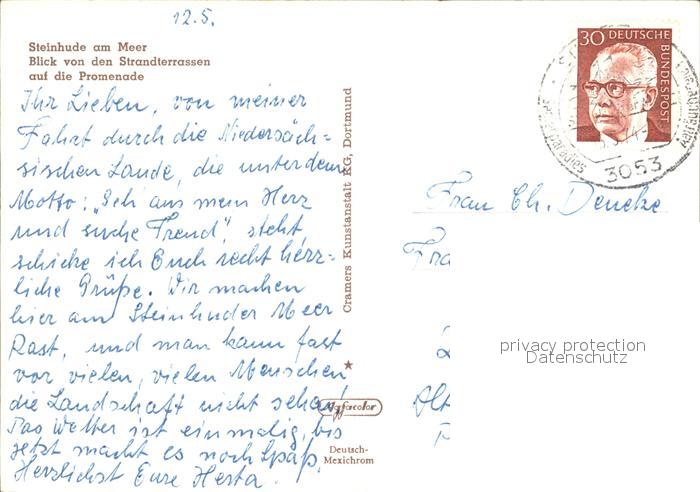 12.5.
Steinhude am Meer
Blick von den Strandterrassen
auf die Promenade
Ihr Lieben, von meiner
Fahrt durch die Niedersäch=
sischen Lande, die unter dem
Motto: „Geh aus mein Herz
und suche Freud", steht
schicke ich Euch recht herz=
liche Grüße. Wir machen
hier am Steinhuder Meer
Rast, und man kann fast
vor vielen, vielen Menschen
die Landschaft nicht sehen!
Das Wetter ist einmalig, bis
jetzt macht es noch Spaß,
Herzlichst Eure Herta.
Cramers Kunstanstalt KG, Dortmund
Agfacolor
Deutsch-
Mexichrom
30 DEUTSCHE
BUNDESPOST
3053
Frau Ch. Deneke
Fra
Alt
privacy protection
Datenschutz